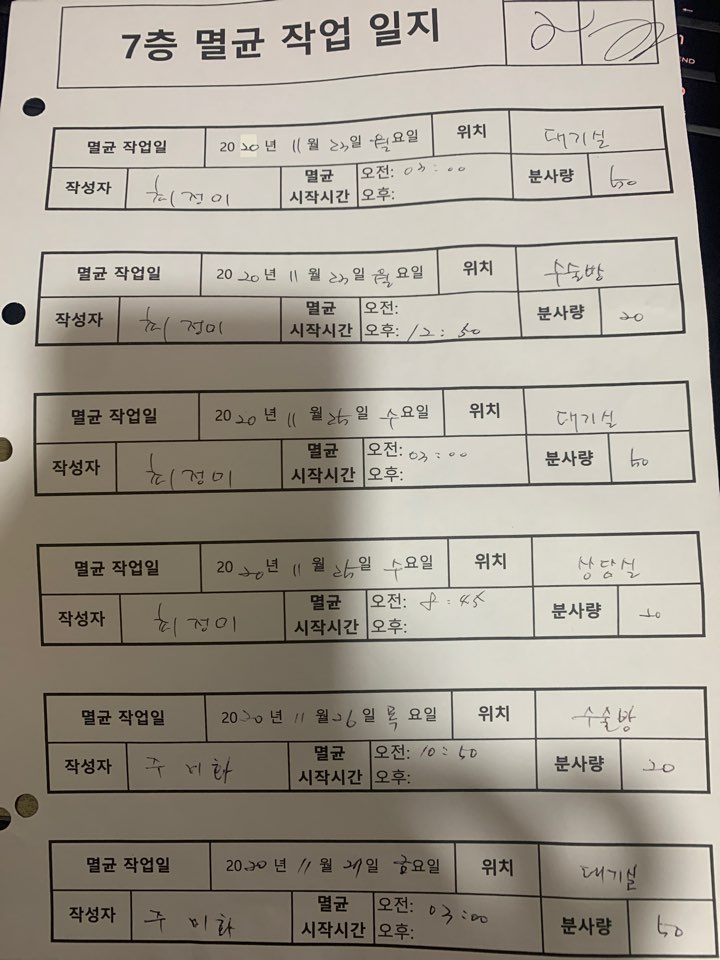 7층 멸균 작업 일지
멸균 작업일 2020년 11월 23일 월요일 위치 대기실
작성자 최정미 멸균 시작시간 오전: 03:00 오후: 분사량 50
멸균 작업일 2020년 11월 23일 월요일 위치 수술방
작성자 최정미 멸균 시작시간 오전: 오후: 12:50 분사량 20
멸균 작업일 2020년 11월 25일 수요일 위치 대기실
작성자 최정미 멸균 시작시간 오전: 03:00 오후: 분사량 50
멸균 작업일 2020년 11월 25일 수요일 위치 상담실
작성자 최정미 멸균 시작시간 오전: 8:45 오후: 분사량
멸균 작업일 2020년 11월 26일 목요일 위치 수술방
작성자 주미화 멸균 시작시간 오전: 10:50 오후: 분사량 20
멸균 작업일 2020년 11월 27일 금요일 위치 대기실
작성자 주미화 멸균 시작시간 오전: 03:00 오후: 분사량 50